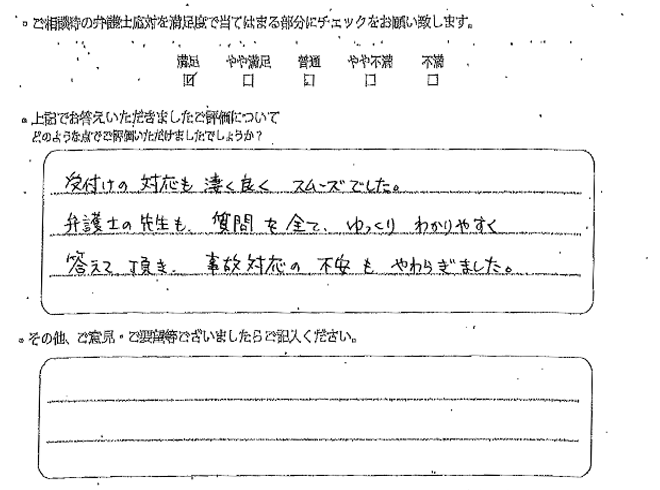 。ご相談時の弁護士応対を満足度で当てはまる部分にチェックをお願い致します。
満足 やや満足 普通 やや不満 不満
☑ □ □ □ □
。上記でお答えいただきましたご評価について
どのような点でご評価いただけましたでしょうか？
受付けの対応も凄く良く スムーズでした。
弁護士の先生も、質問を全て、ゆっくり わかりやすく
答えて頂き、事故対応の不安も やわらぎました。
。その他、ご意見・ご要望等ございましたらご記入ください。